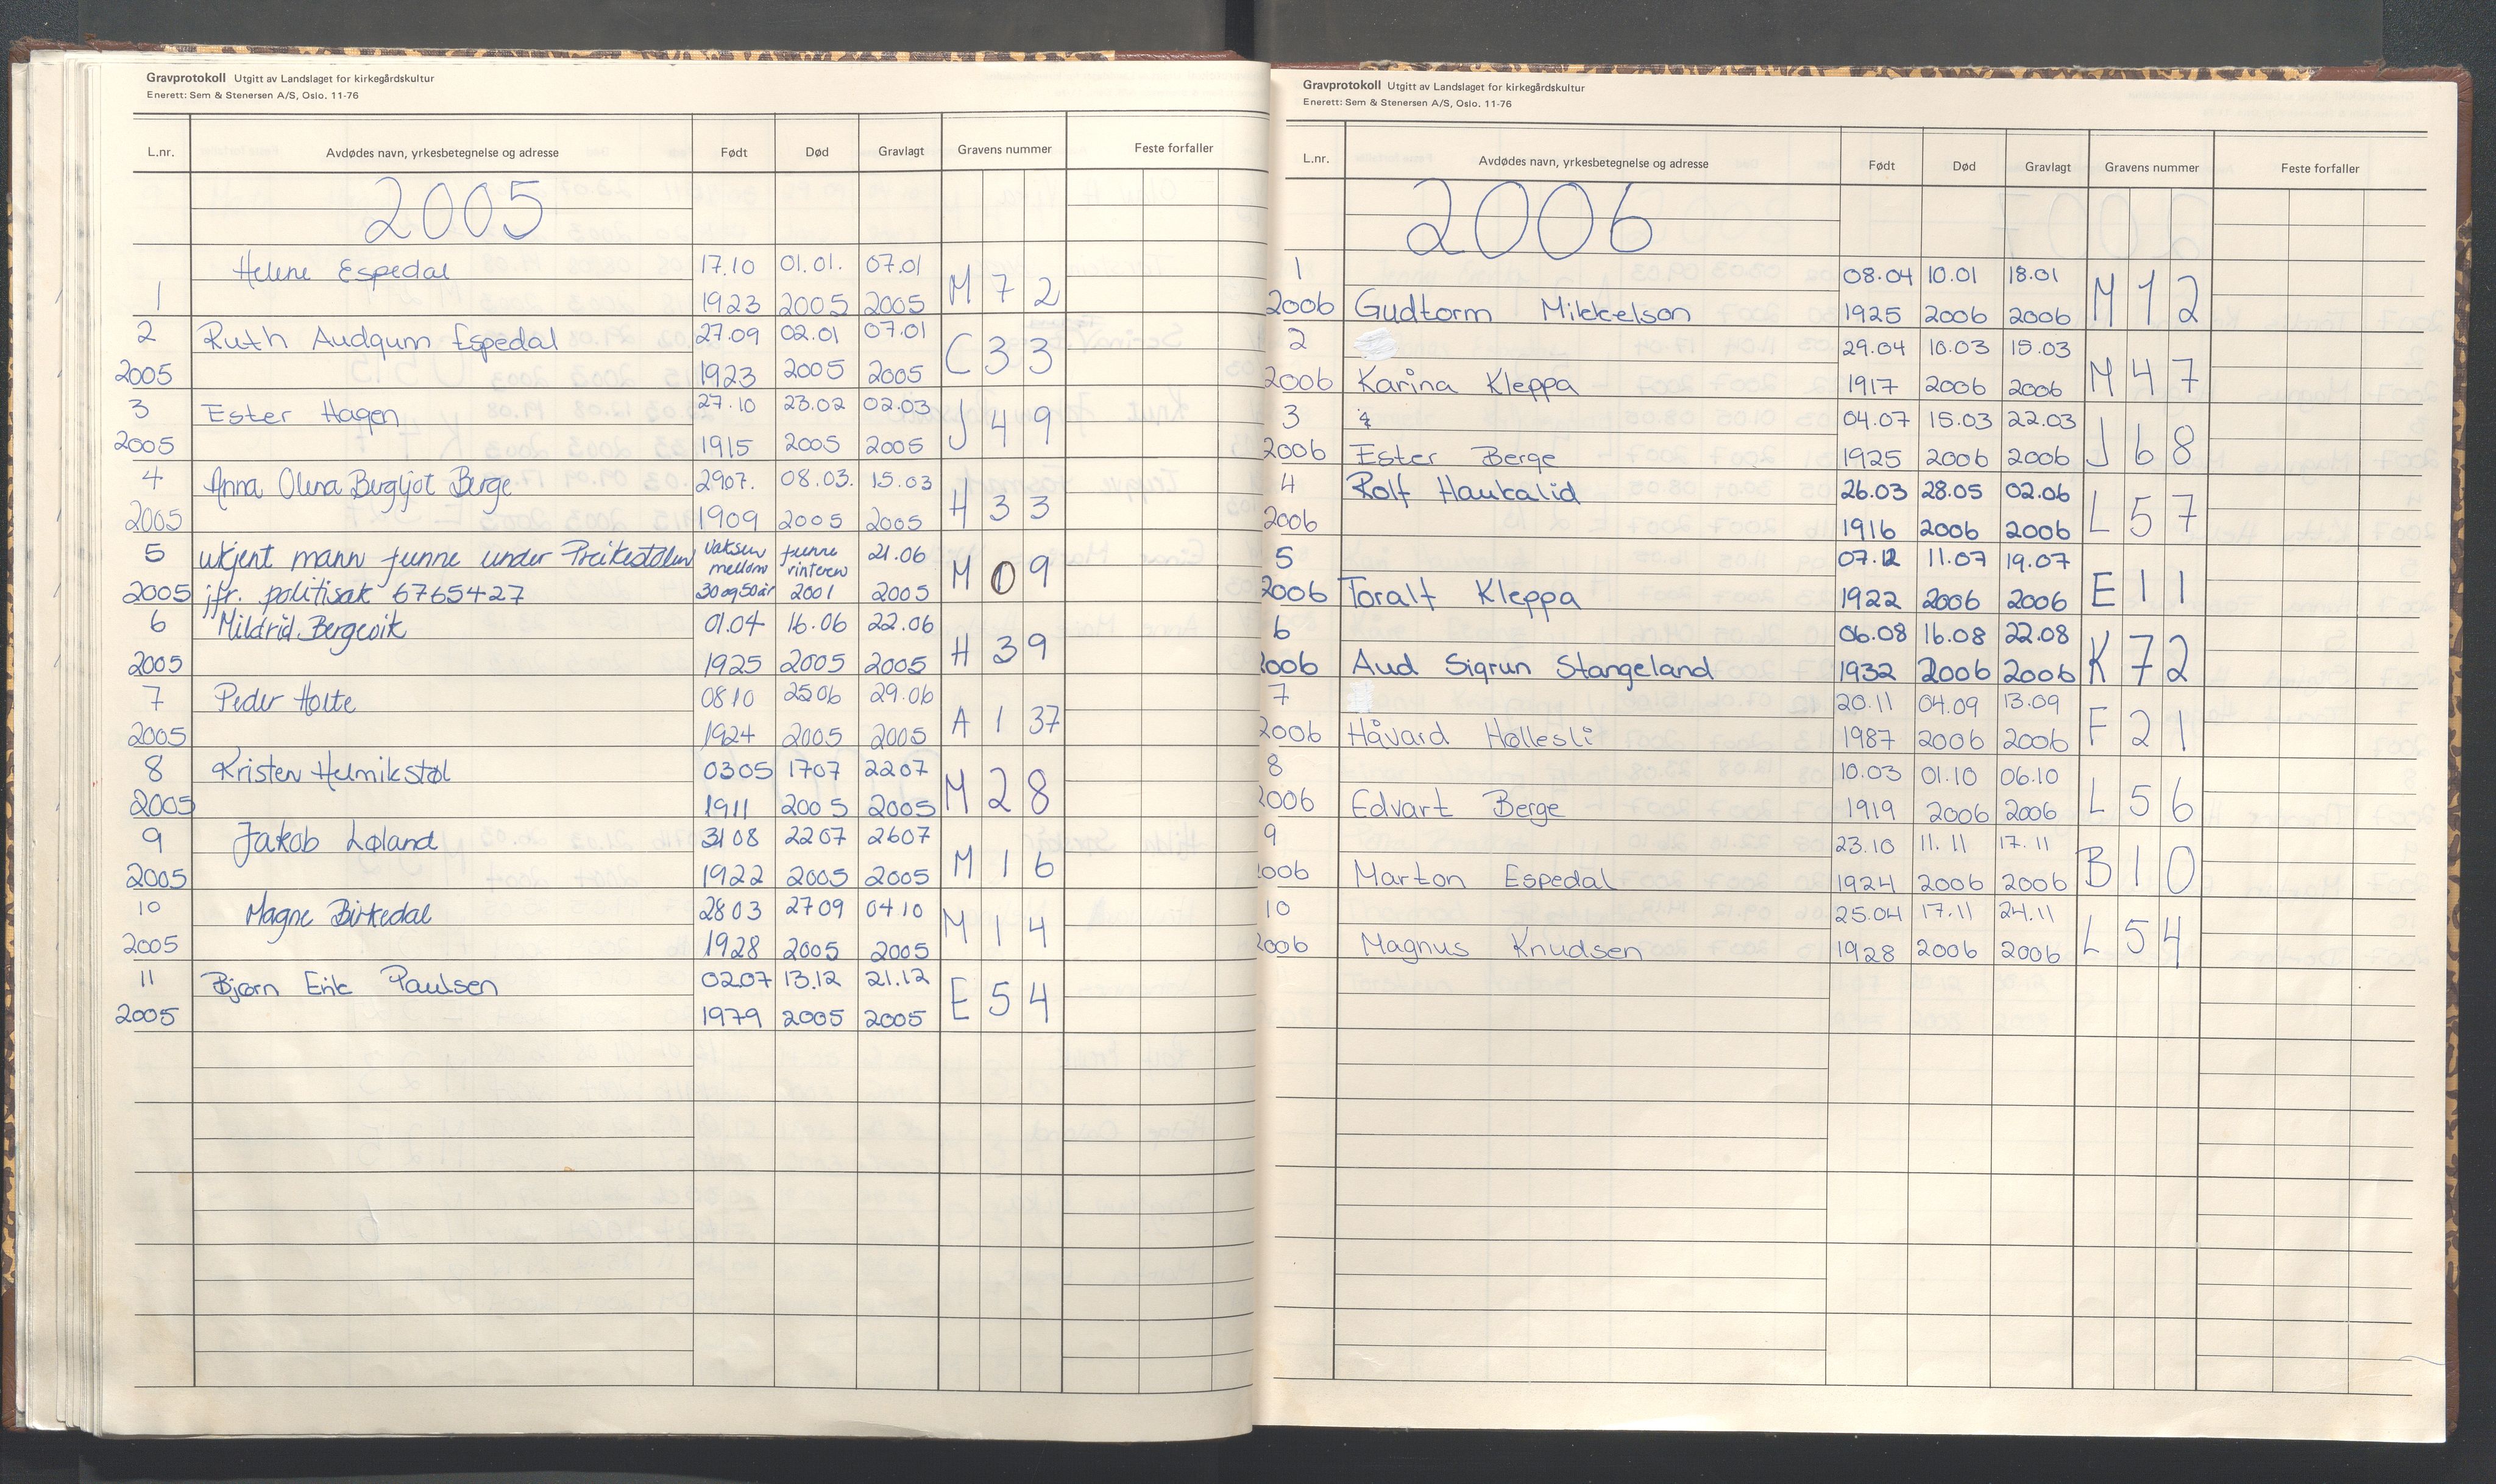 Gravprotokoll Utgitt av Landslaget for kirkegårdskultur
Enerett: Sem & Stenersen A/S, Oslo. 11-76
L.nr. Avdødes navn, yrkesbetegnelse og adresse Født Død Gravlagt Gravens nummer Feste forfaller
2005
Helene Espedal 17.10 01.01. 07.01
1 1923 2005 2005 M 7 2
2 Ruth Audgunn Espedal 27.09 02.01 07.01
2005 1923 2005 2005 C 3 3
3 Ester Hagen 27.10 23.02 02.03
2005 1915 2005 2005 J 4 9
4 Anna Olena Bergljot Berge 2907. 08.03. 15.03
2005 1909 2005 2005 H 3 3
5 ukjent mann funne under Preikestolen Vaksen mellom funne vinteren 21.06
2005 jfr. politisak 6765427 30 og 50 år 2001 2005 M 0 9
6 Mildrid Bergevik 01.04 16.06 22.06
2005 1925 2005 2005 H 3 9
7 Peder Holte 0810 2506 29.06
2005 1924 2005 2005 A 1 37
8 Kristen Helmikstøl 0305 1707 2207
2005 1911 2005 2005 M 2 8
9 Jakob Løland 3108 2207 2607
2005 1922 2005 2005 M 1 6
10 Magne Birkedal 2803 2709 0410
2005 1928 2005 2005 M 1 4
11 Bjørn Erik Paulsen 0207 13.12 21.12
2005 1979 2005 2005 E 5 4
Gravprotokoll Utgitt av Landslaget for kirkegårdskultur
Enerett: Sem & Stenersen A/S, Oslo. 11-76
L.nr. Avdødes navn, yrkesbetegnelse og adresse Født Død Gravlagt Gravens nummer Feste forfaller
2006
1 08.04 10.01 18.01
2006 Gudtorm Mikkelson 1925 2006 2006 M 1 2
2 29.04 10.03 15.03
2006 Karina Kleppa 1917 2006 2006 M 4 7
3 04.07 15.03 22.03
2006 Ester Berge 1925 2006 2006 J 6 8
4 Rolf Haukalid 26.03 28.05 02.06
2006 1916 2006 2006 L 5 7
5 07.12 11.07 19.07
2006 Toralf Kleppa 1922 2006 2006 E 1 1
6 06.08 16.08 22.08
2006 Aud Sigrun Stangeland 1932 2006 2006 K 7 2
7 20.11 04.09 13.09
2006 Håvard Høllesli 1987 2006 2006 F 2 1
8 10.03 01.10 06.10
2006 Edvart Berge 1919 2006 2006 L 5 6
9 23.10 11.11 17.11
2006 Marton Espedal 1924 2006 2006 B 1 0
10 25.04 17.11 24.11
2006 Magnus Knudsen 1928 2006 2006 L 5 4